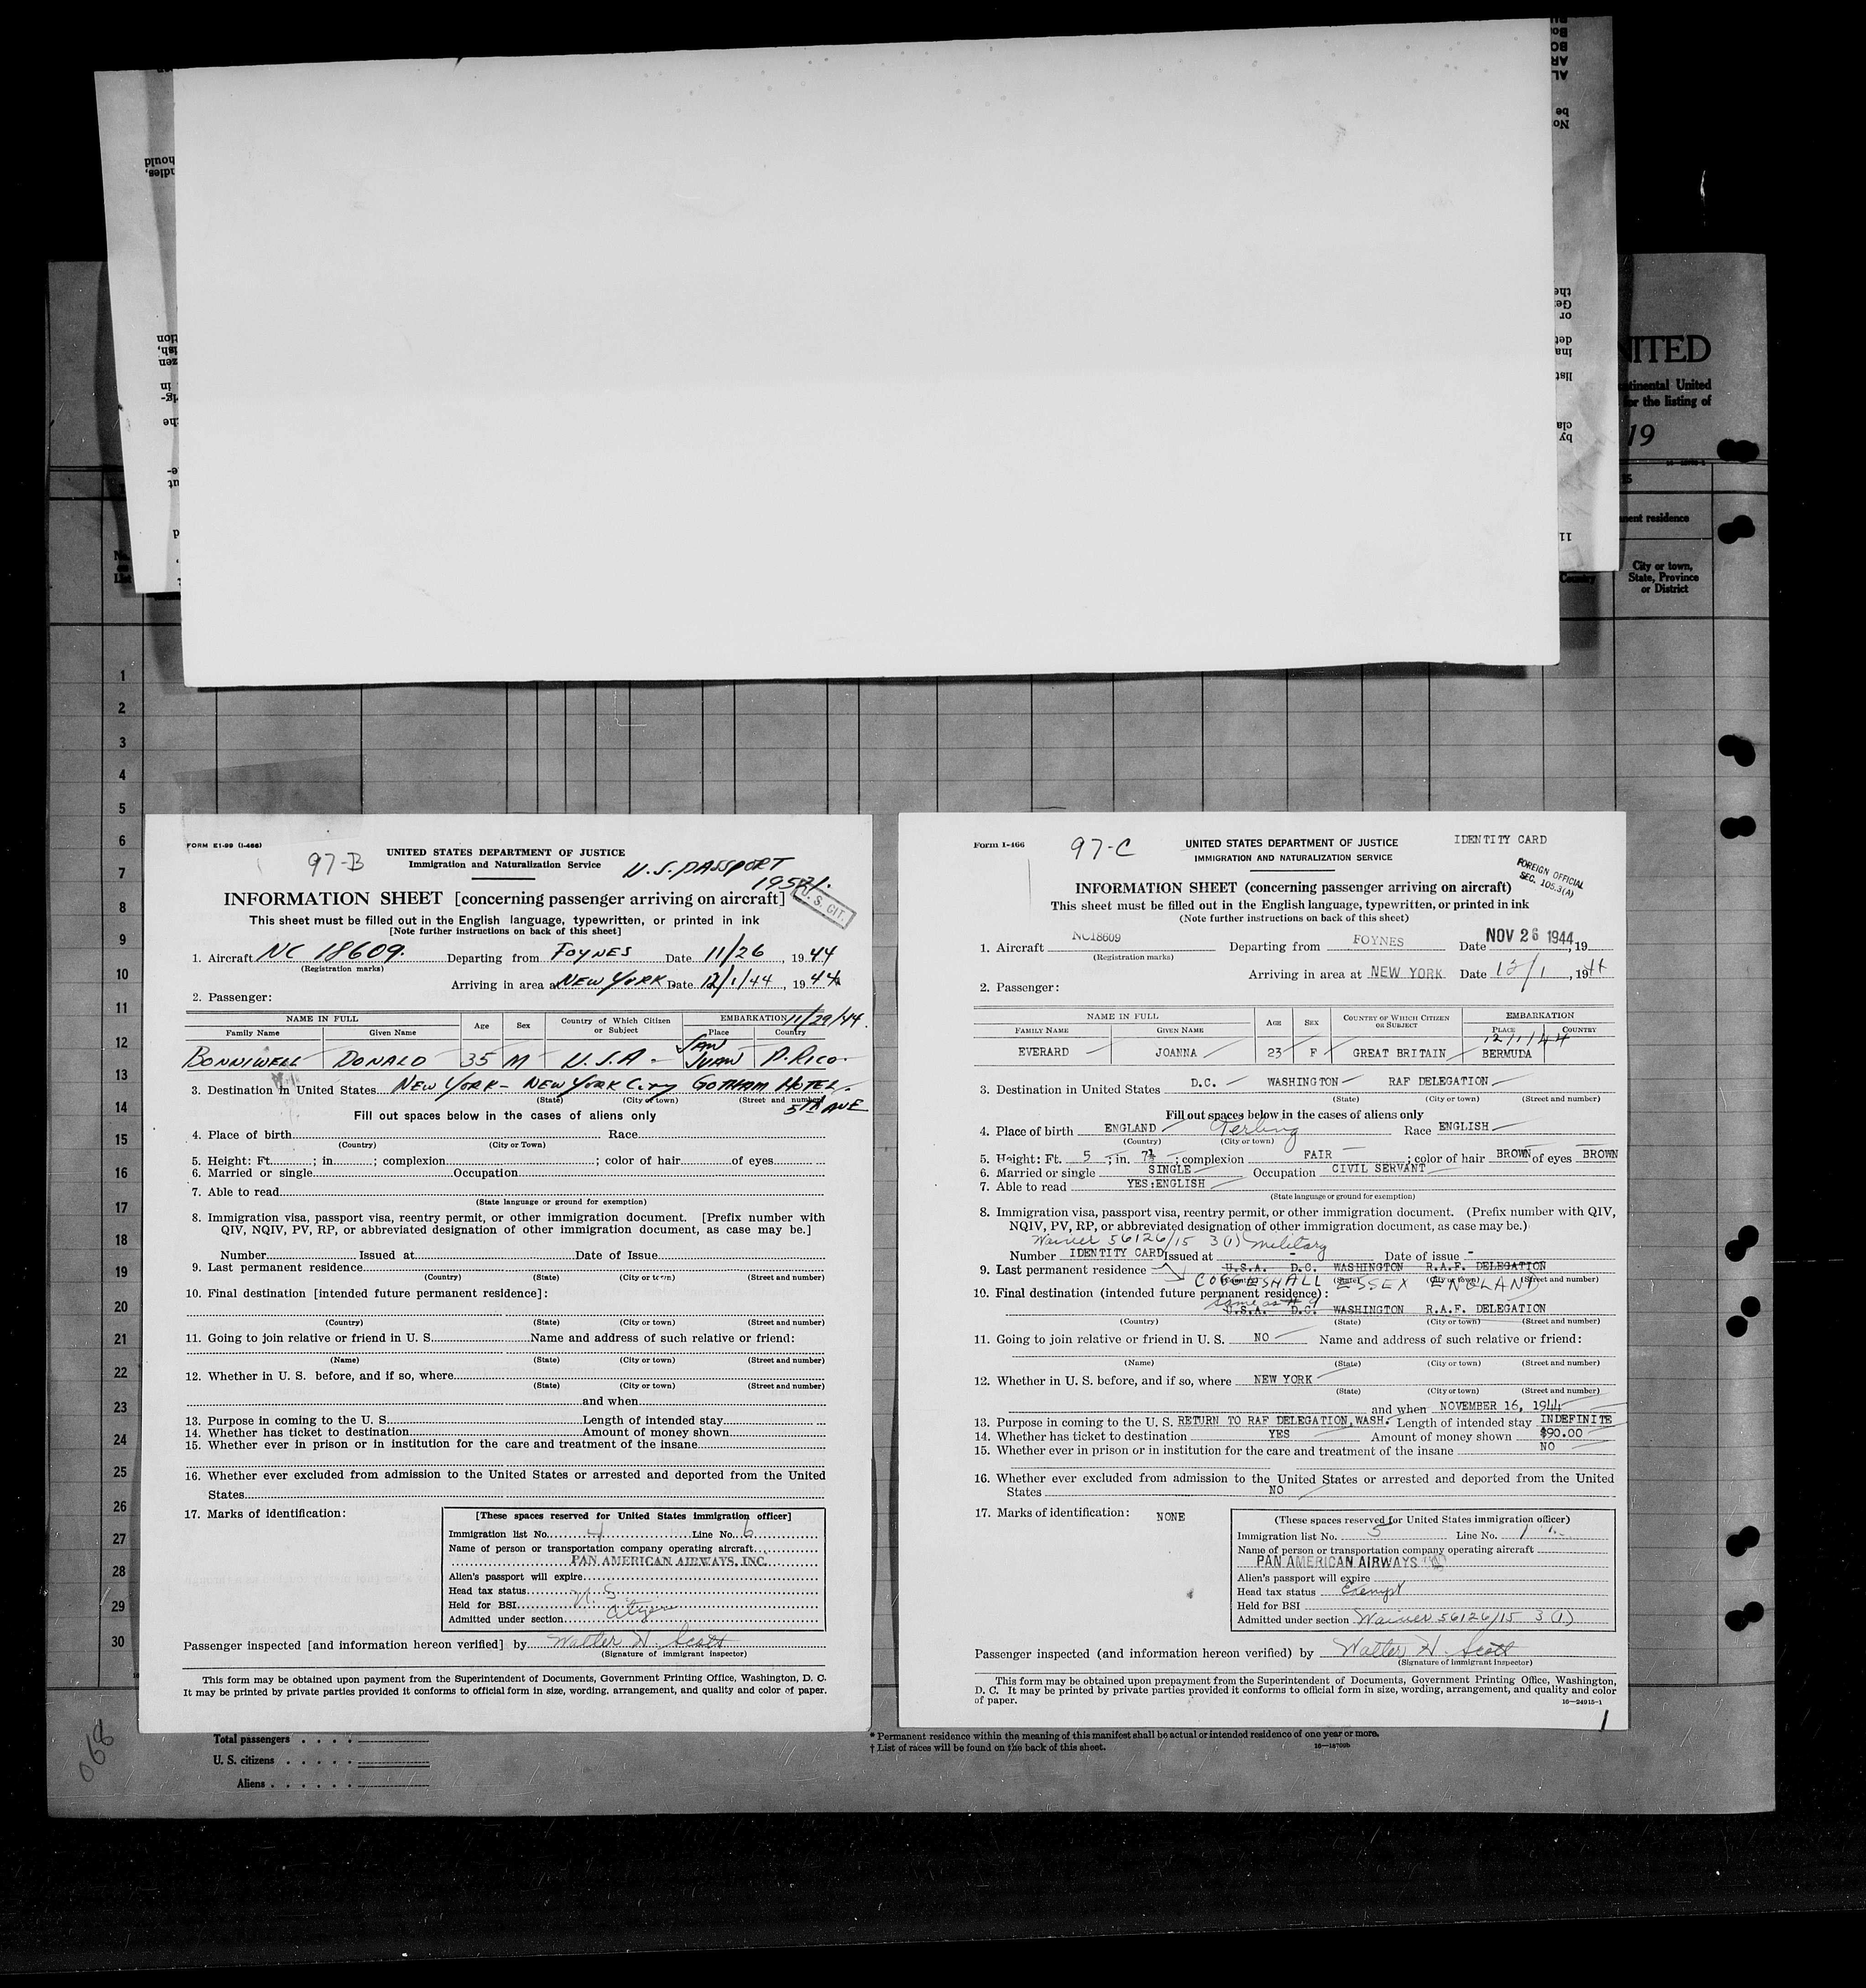 NITED
ntinental United
for the listing of
19
nent residence
City or town,
State, Province
or District
Country
No.
on
List
1
2
3
4
5
6
7
8
9
10
11
12
13
14
15
16
17
18
19
20
21
22
23
24
25
26
27
28
29
30
FORM E1-99 (I-466)
97-B
UNITED STATES DEPARTMENT OF JUSTICE
Immigration and Naturalization Service
U.S. PASSPORT
U. S. CIT.
INFORMATION SHEET [concerning passenger arriving on aircraft]
This sheet must be filled out in the English language, typewritten, or printed in ink
[Note further instructions on back of this sheet]
1. Aircraft NC 18609. Departing from FOYNES Date 11/26, 1944
(Registration marks)
Arriving in area at NEW YORK Date 12/1/44, 1944
2. Passenger:
NAME IN FULL Age Sex Country of Which Citizen or Subject EMBARKATION 11/29/44
Family Name Given Name Place Country
BONNIWELL DONALD 35 M U.S.A. SAN JUAN P. RICO
3. Destination in United States NEW YORK - NEW YORK City GOTHAM HOTEL.
(State) (City or town) (Street and number)
5th AVE
Fill out spaces below in the cases of aliens only
4. Place of birth Race
(Country) (City or Town)
5. Height: Ft. ; in. ; complexion ; color of hair of eyes
6. Married or single Occupation
7. Able to read
(State language or ground for exemption)
8. Immigration visa, passport visa, reentry permit, or other immigration document. [Prefix number with
QIV, NQIV, PV, RP, or abbreviated designation of other immigration document, as case may be.]
Number Issued at Date of Issue
9. Last permanent residence
(Country) (State) (City or town) (Street and number)
10. Final destination [intended future permanent residence]:
(Country) (State) (City or town) (Street and number)
11. Going to join relative or friend in U. S. Name and address of such relative or friend:
(Name) (State) (City or town) (Street and number)
12. Whether in U. S. before, and if so, where
(State) (City or town) (Street and number)
and when
13. Purpose in coming to the U. S. Length of intended stay
14. Whether has ticket to destination Amount of money shown
15. Whether ever in prison or in institution for the care and treatment of the insane
16. Whether ever excluded from admission to the United States or arrested and deported from the United
States
17. Marks of identification:
[These spaces reserved for United States immigration officer]
Immigration list No. 4 Line No. 6
Name of person or transportation company operating aircraft
PAN AMERICAN AIRWAYS, INC.
Alien's passport will expire
Head tax status U. S.
Held for BSI Citizen
Admitted under section
Passenger inspected [and information hereon verified] by Walter H. Scott
(Signature of immigrant inspector)
This form may be obtained upon payment from the Superintendent of Documents, Government Printing Office, Washington, D. C.
It may be printed by private parties provided it conforms to official form in size, wording, arrangement, and quality and color of paper.
Form I-466
97-C
UNITED STATES DEPARTMENT OF JUSTICE
IMMIGRATION AND NATURALIZATION SERVICE
IDENTITY CARD
FOREIGN OFFICIAL
SEC. 105.3(A)
INFORMATION SHEET (concerning passenger arriving on aircraft)
This sheet must be filled out in the English language, typewritten, or printed in ink
(Note further instructions on back of this sheet)
1. Aircraft NC18609 Departing from FOYNES Date NOV 26 1944, 19
(Registration marks)
Arriving in area at NEW YORK Date 12/1, 1944
2. Passenger:
NAME IN FULL AGE SEX COUNTRY OF WHICH CITIZEN OR SUBJECT EMBARKATION
FAMILY NAME GIVEN NAME PLACE COUNTRY
12/1/44
EVERARD JOANNA 23 F GREAT BRITAIN BERMUDA
3. Destination in United States D.C. WASHINGTON RAF DELEGATION
(State) (City or town) (Street and number)
Fill out spaces below in the cases of aliens only
4. Place of birth ENGLAND Terling Race ENGLISH
(Country) (City or town)
5. Height: Ft. 5 ; in. 7½ ; complexion FAIR ; color of hair BROWN of eyes BROWN
6. Married or single SINGLE Occupation CIVIL SERVANT
7. Able to read YES:ENGLISH
(State language or ground for exemption)
8. Immigration visa, passport visa, reentry permit, or other immigration document. (Prefix number with QIV,
NQIV, PV, RP, or abbreviated designation of other immigration document, as case may be.)
Waiver 56126/15 3(1) military
Number IDENTITY CARD Issued at - Date of issue -
9. Last permanent residence U.S.A. D.C. WASHINGTON R.A.F. DELEGATION
(Country) (State) (City or town) (Street and number)
COGGESHALL ESSEX ENGLAND
10. Final destination (intended future permanent residence):
Same as # 9
U.S.A. D.C. WASHINGTON R.A.F. DELEGATION
(Country) (State) (City or town) (Street and number)
11. Going to join relative or friend in U. S. NO Name and address of such relative or friend:
(Name) (State) (City or town) (Street and number)
12. Whether in U. S. before, and if so, where NEW YORK
(State) (City or town) (Street and number)
and when NOVEMBER 16, 1944
13. Purpose in coming to the U. S. RETURN TO RAF DELEGATION, WASH. Length of intended stay INDEFINITE
14. Whether has ticket to destination YES Amount of money shown $90.00
15. Whether ever in prison or in institution for the care and treatment of the insane NO
16. Whether ever excluded from admission to the United States or arrested and deported from the United
States NO
17. Marks of identification: NONE
(These spaces reserved for United States immigration officer)
Immigration list No. 5 Line No. 1
Name of person or transportation company operating aircraft
PAN AMERICAN AIRWAYS
Alien's passport will expire
Head tax status Exempt
Held for BSI
Admitted under section Waiver 56126/15 3(1)
Passenger inspected (and information hereon verified) by Walter H. Scott
(Signature of immigrant inspector)
This form may be obtained upon prepayment from the Superintendent of Documents, Government Printing Office, Washington,
D. C. It may be printed by private parties provided it conforms to official form in size, wording, arrangement, and quality and color
of paper.
16—24915-1
1
Total passengers
U. S. citizens
Aliens
* Permanent residence within the meaning of this manifest shall be actual or intended residence of one year or more.
† List of races will be found on the back of this sheet.
890